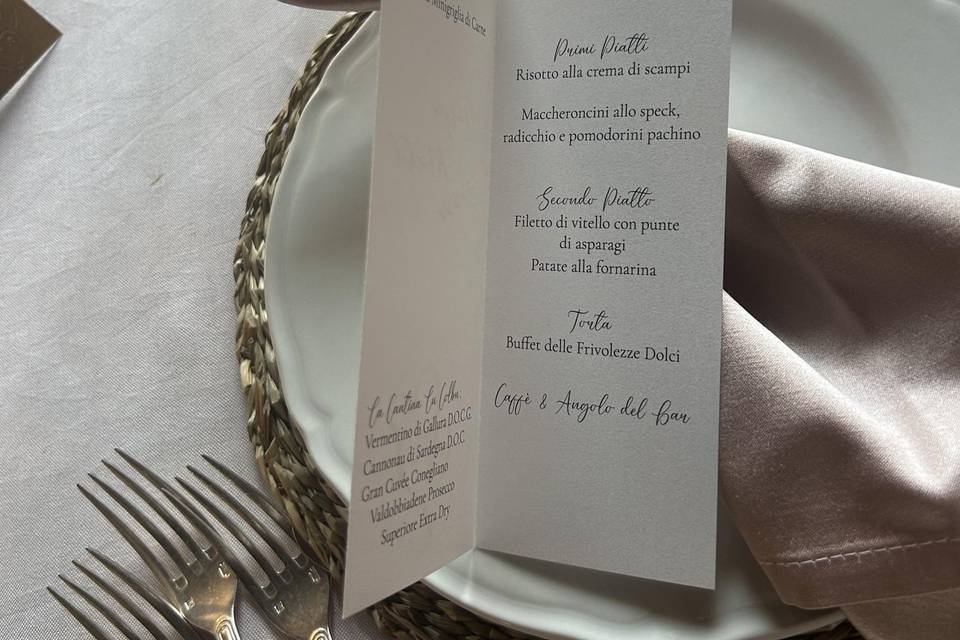 Minigriglia di Carne
La Cantina
Vermentino di Gallura D.O.C.G.
Cannonau di Sardegna D.O.C.
Gran Cuvée Conegliano
Valdobbiadene Prosecco
Superiore Extra Dry
Primi Piatti
Risotto alla crema di scampi
Maccheroncini allo speck,
radicchio e pomodorini pachino
Secondo Piatto
Filetto di vitello con punte
di asparagi
Patate alla fornarina
Torta
Buffet delle Frivolezze Dolci
Caffè & Angolo del Bar